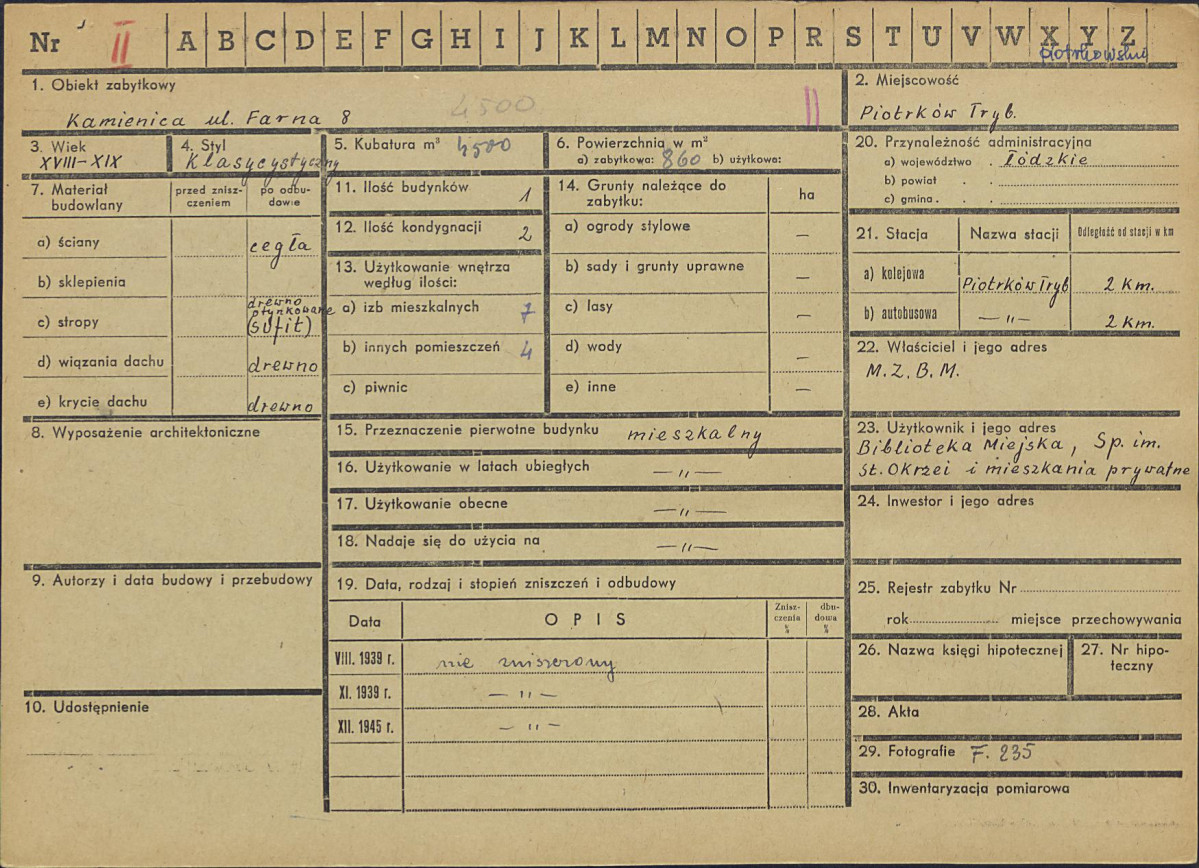 Nr II A B C D E F G H I J K L M N O P R S T U V W X Y Z
piotrkowskie
1. Obiekt zabytkowy
4500
II
Kamienica ul. Farna 8
2. Miejscowość
Piotrków Tryb.
3. Wiek
XVIII-XIX
4. Styl
Klasycystyczny
5. Kubatura m³ 4500
6. Powierzchnia w m²
a) zabytkowa: 860 b) użytkowa:
7. Materiał budowlany
przed zniszczeniem
po odbudowie
a) ściany cegła
b) sklepienia
c) stropy drewno
otynkowane
(sufit)
d) wiązania dachu drewno
e) krycie dachu drewno
8. Wyposażenie architektoniczne
9. Autorzy i data budowy i przebudowy
10. Udostępnienie
11. Ilość budynków 1
12. Ilość kondygnacji 2
13. Użytkowanie wnętrza
według ilości:
a) izb mieszkalnych 7
b) innych pomieszczeń 4
c) piwnic
14. Grunty należące do
zabytku:
ha
a) ogrody stylowe —
b) sady i grunty uprawne —
c) lasy —
d) wody —
e) inne —
15. Przeznaczenie pierwotne budynku mieszkalny
16. Użytkowanie w latach ubiegłych —"—
17. Użytkowanie obecne —"—
18. Nadaje się do użycia na —"—
19. Data, rodzaj i stopień zniszczeń i odbudowy
Data
OPIS
Znisz-
czenia
%
dbu-
dowa
%
VIII. 1939 r. nie zniszczony
XI. 1939 r. —"—
XII. 1945 r. —"—
20. Przynależność administracyjna
a) województwo . Łódzkie
b) powiat . .
c) gmina . .
21. Stacja
Nazwa stacji
Odległość od stacji w km
a) kolejowa Piotrków Tryb 2 Km.
b) autobusowa —"— 2 Km.
22. Właściciel i jego adres
M.Z.B.M.
23. Użytkownik i jego adres
Biblioteka Miejska, Sp. im.
St. Okrzei i mieszkania prywatne
24. Inwestor i jego adres
25. Rejestr zabytku Nr
rok miejsce przechowywania
26. Nazwa księgi hipotecznej
27. Nr hipo-
teczny
28. Akta
29. Fotografie F. 235
30. Inwentaryzacja pomiarowa